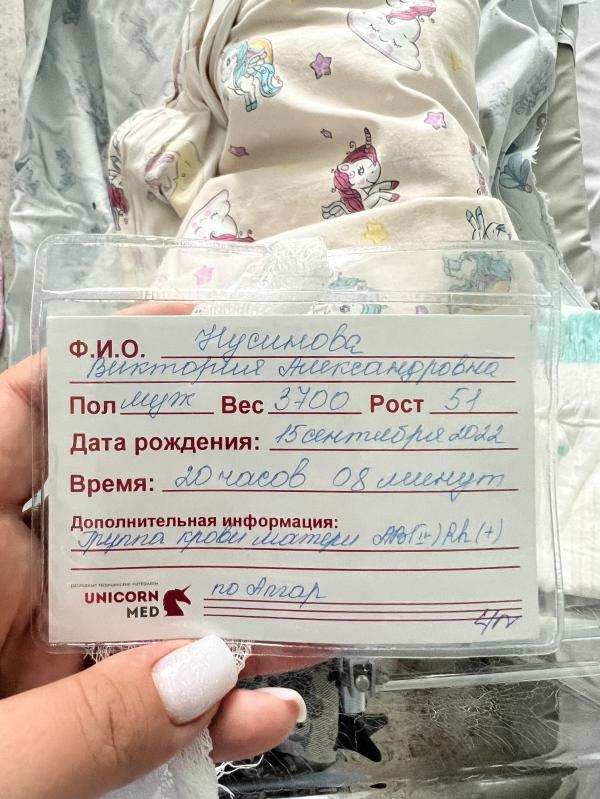 Ф.И.О. Нусинова
Виктория Александровна
Пол муж Вес 3700 Рост 51
Дата рождения: 15 сентября 2022
Время: 20 часов 08 минут
Дополнительная информация:
Группа крови матери АВ(IV) Rh(+)
расходные медицинские материалы
UNICORN
MED
по Апгар